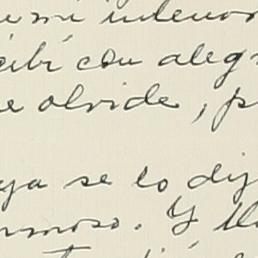 mi interior
cibí con aleg
e olvide, p
ya se lo dij
rmoso. Y